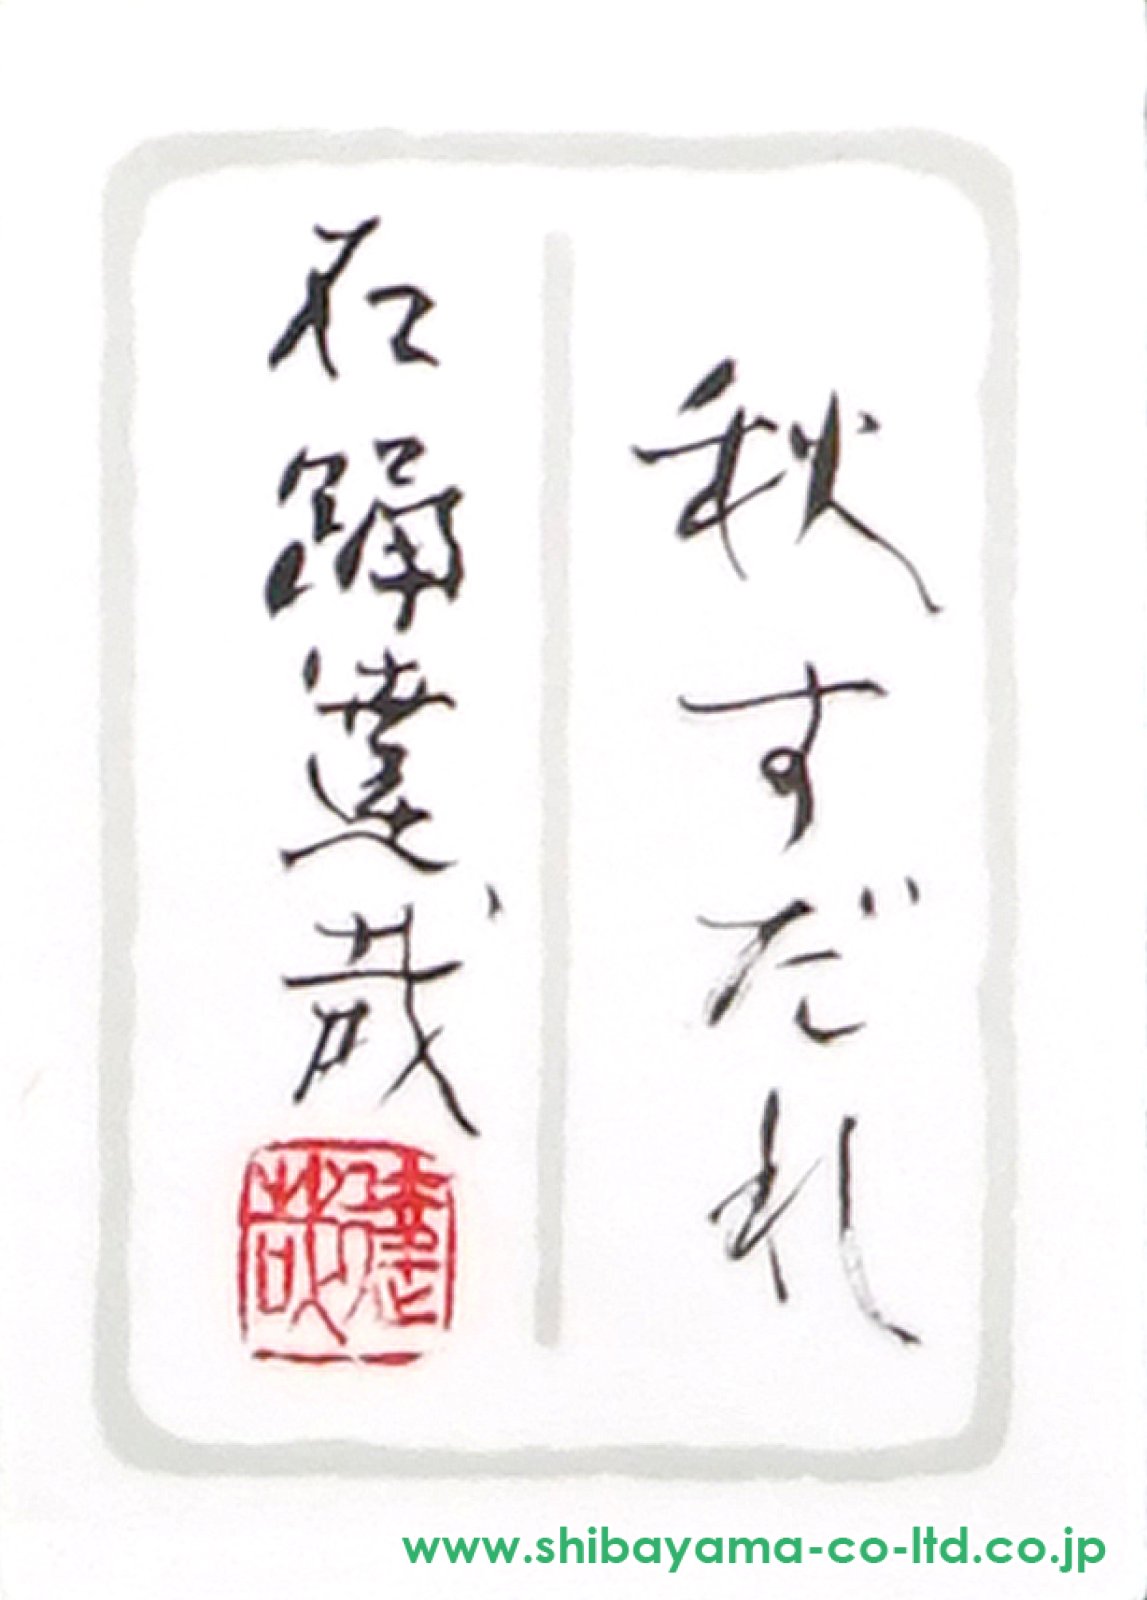 秋すだれ
石踊達哉
達哉
www.shibayama-co-ltd.co.jp